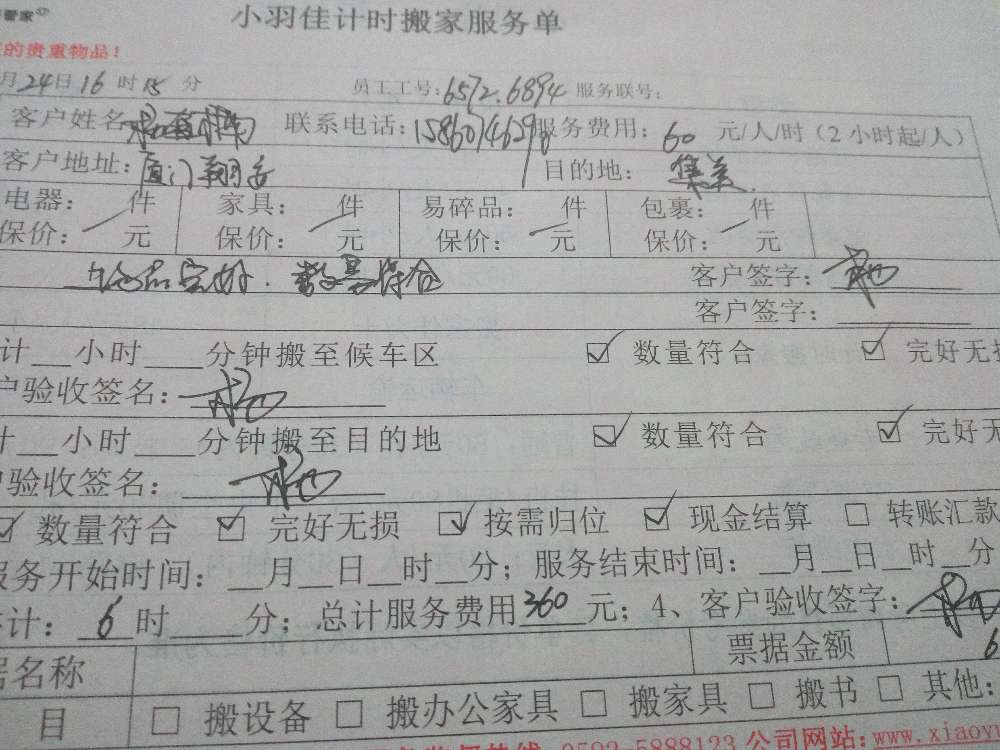 管家
小羽佳计时搬家服务单
的贵重物品！
月24日16时15分 员工工号：6572.6894 服务联号：
客户姓名 联系电话： 服务费用：60元/人/时（2小时起/人）
客户地址：厦门翔安 目的地：集美
电器：件 家具：件 易碎品：件 包裹：件
保价：元 保价：元 保价：元 保价：元
物品完好．数量符合 客户签字：
客户签字：
计__小时____分钟搬至候车区 ☑数量符合 ☑完好无损
户验收签名：
计__小时____分钟搬至目的地 ☑数量符合 ☑完好无
户验收签名：
☑数量符合 ☑完好无损 ☑按需归位 ☑现金结算 □转账汇款
服务开始时间：__月__日__时__分；服务结束时间：__月__日__时__分
计：6时____分；总计服务费用360元；4、客户验收签字：
据名称 票据金额 6
目 □搬设备 □搬办公家具 □搬家具 □搬书 □其他：
0592-5888123 公司网站：www.xiaoy